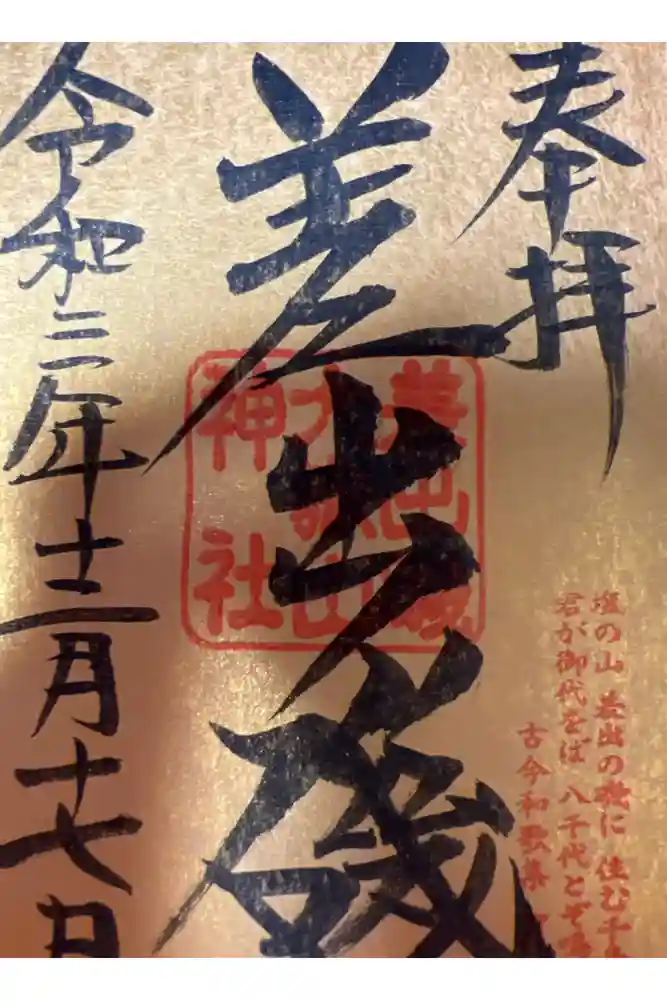 奉拝
塩の山 差出の磯に 住む千
君が御代をば 八千代とぞ
古今和歌集
差出乃磯
差出磯
大嶽山
神社
令和三年十二月十七日